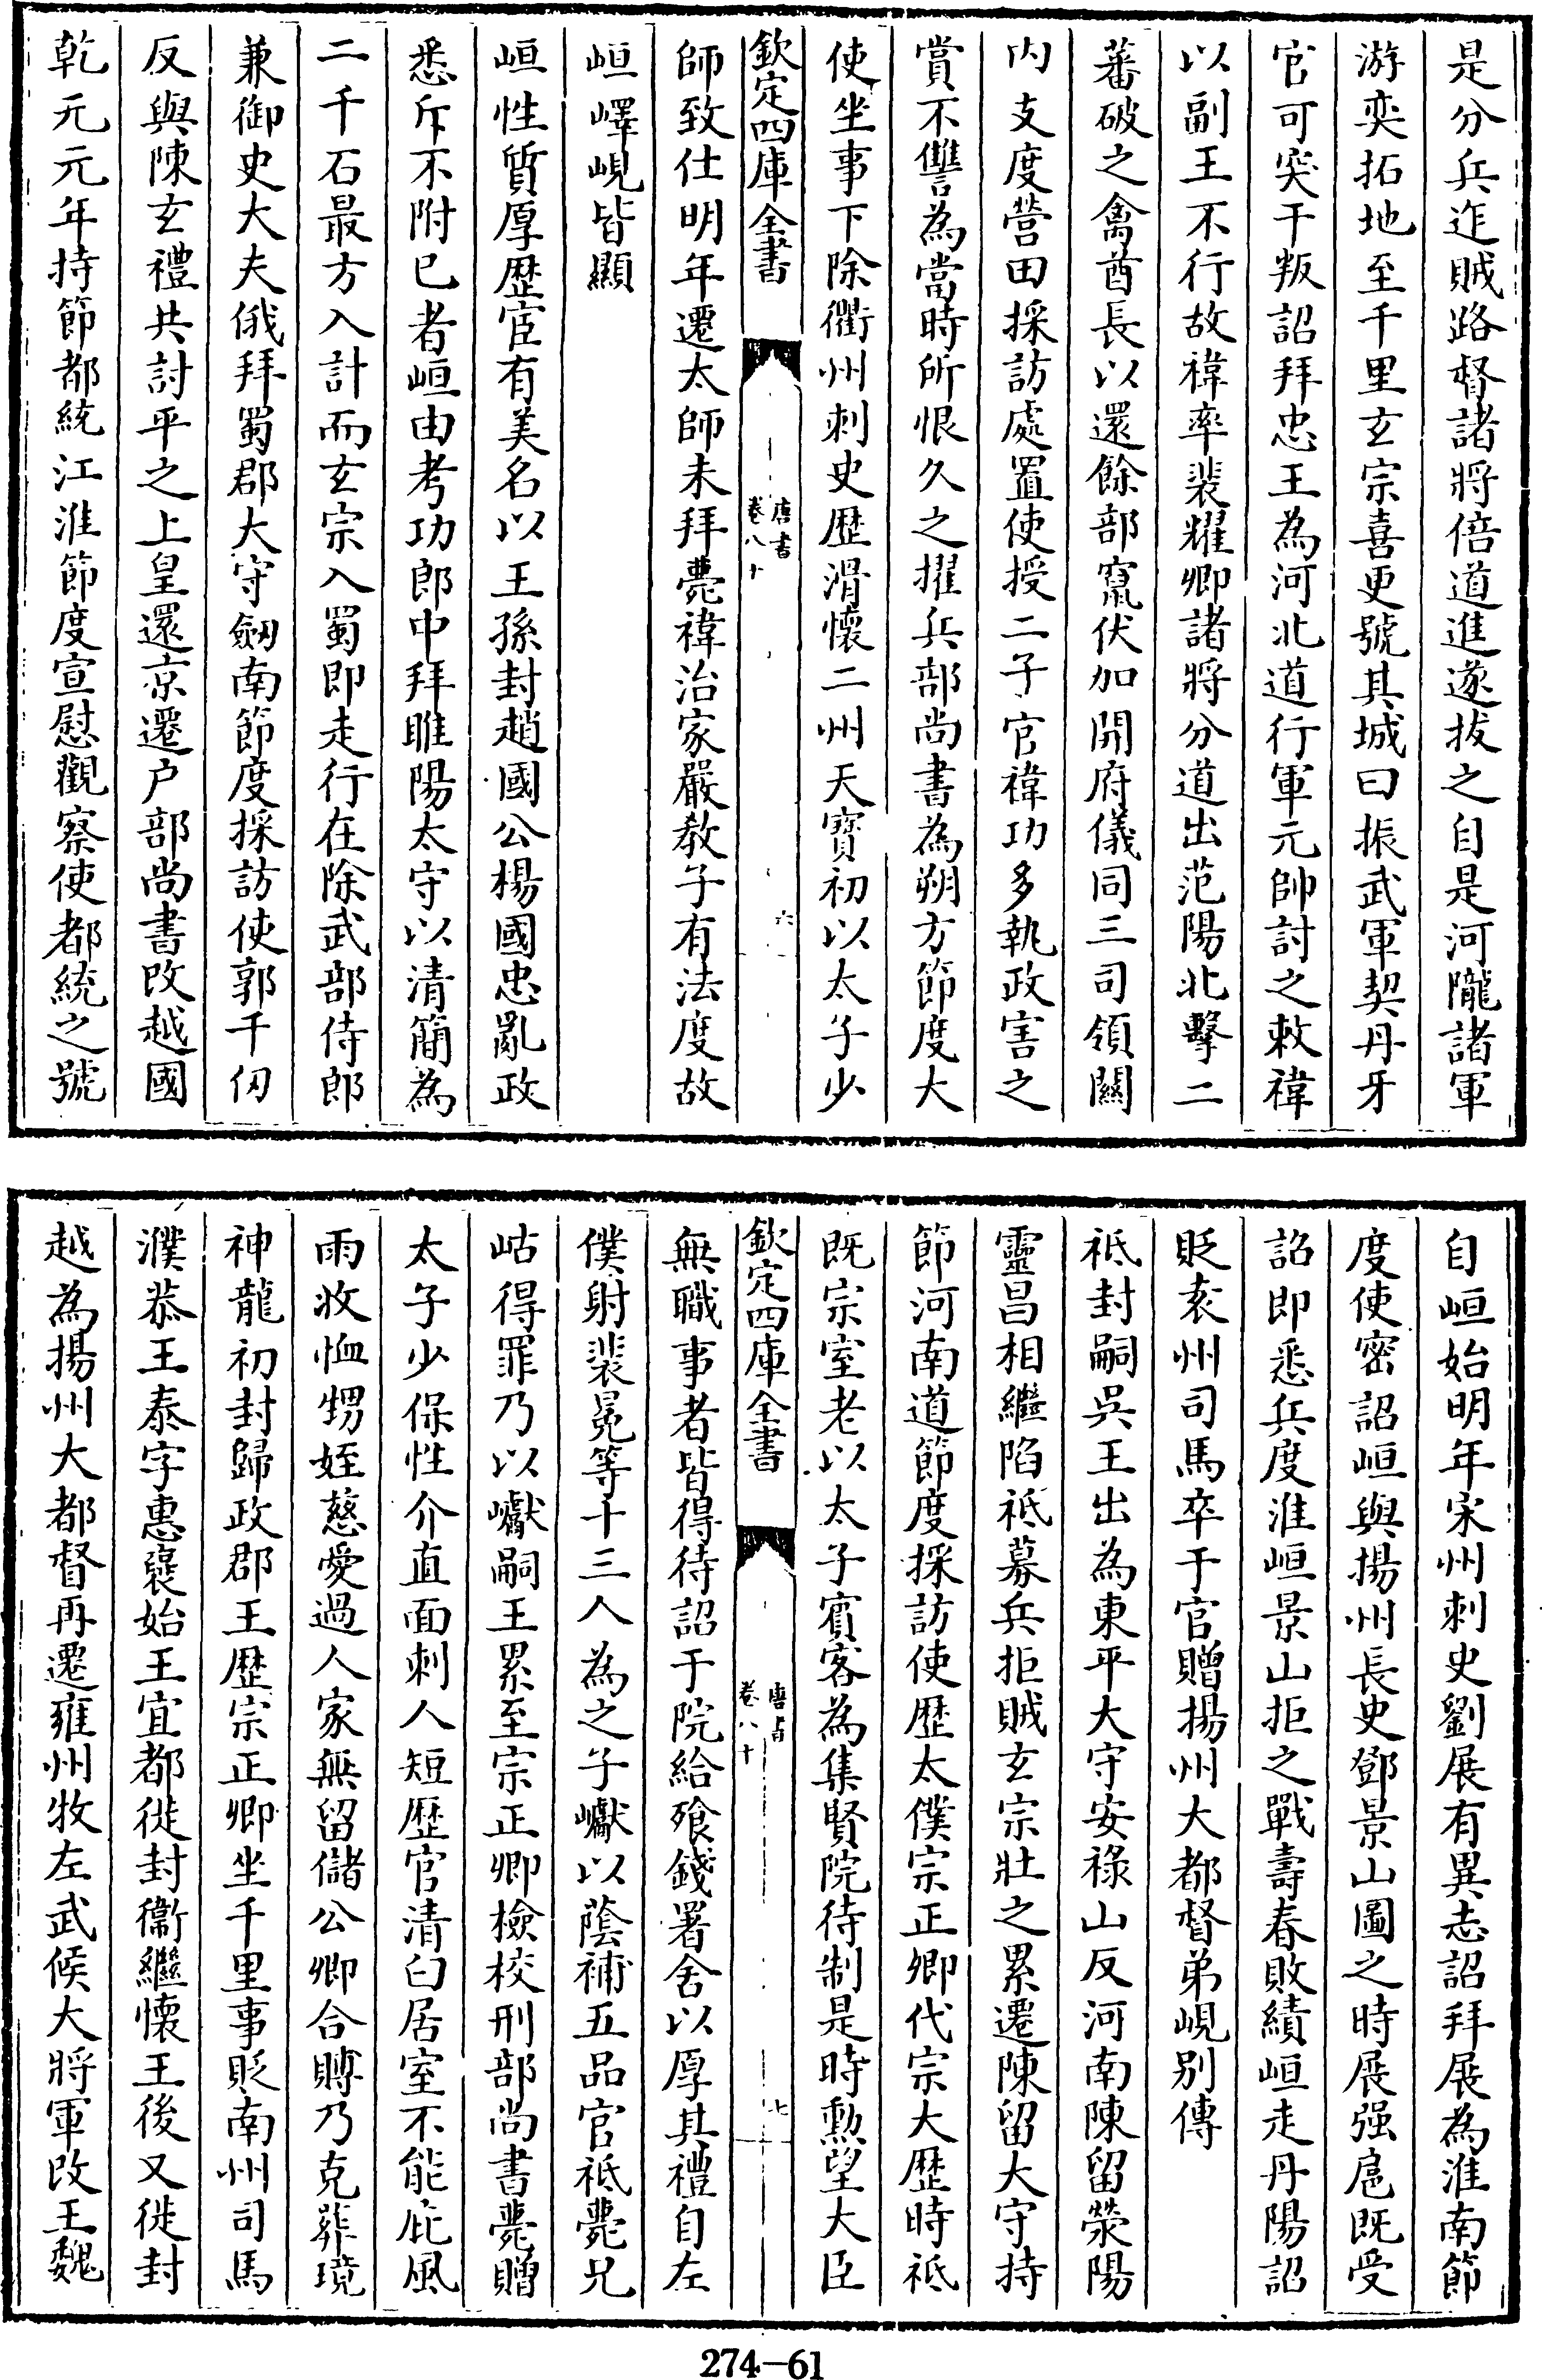 是分兵迮賊路督諸將倍道進遂拔之自是河隴諸軍
游奕拓地至千里玄宗喜更號其城曰振武軍契丹牙
官可突干叛詔拜忠王為河北道行軍元帥討之敕禕
以副王不行故禕率裴耀卿諸將分道出范陽北擊二
蕃破之禽酋長以還餘部竄伏加開府儀同三司領關
内支度營田採訪處置使授二子官禕功多執政害之
賞不讐為當時所恨久之擢兵部尚書為朔方節度大
使坐事下除衢州刺史歴滑懷二州天寶初以太子少
欽定四庫全書
唐書
卷八十
六
師致仕明年遷太師未拜薨禕治家嚴教子有法度故
峘嶧峴皆顯
峘性質厚歴宦有美名以王孫封趙國公楊國忠亂政
悉斥不附已者峘由考功郎中拜睢陽太守以清簡為
二千石最方入計而玄宗入蜀即走行在除武部侍郎
兼御史大夫俄拜蜀郡大守劒南節度採訪使郭千仞
反與陳玄禮共討平之上皇還京遷户部尚書改越國
乾元元年持節都統江淮節度宣慰觀察使都統之號
自峘始明年宋州刺史劉展有異志詔拜展為淮南節
度使密詔峘與揚州長史鄧景山圖之時展强扈既受
詔即悉兵度淮峘景山拒之戰壽春敗績峘走丹陽詔
貶袁州司馬卒于官贈揚州大都督弟峴别傳
祗封嗣吳王出為東平大守安祿山反河南陳留滎陽
靈昌相繼陷祗募兵拒賊玄宗壯之累遷陳留大守持
節河南道節度採訪使歴太僕宗正卿代宗大歴時祗
既宗室老以太子賓客為集賢院待制是時勲望大臣
欽定四庫全書
唐書
卷八十
七
無職事者皆得待詔于院給飱錢署舍以厚其禮自左
僕射裴冕等十三人為之子巘以蔭補五品官祗薨兄
岵得罪乃以巘嗣王累至宗正卿檢校刑部尚書薨贈
太子少保性介直面刺人短歴官清白居室不能庇風
雨收恤甥姪慈愛過人家無留儲公卿合賻乃克葬璄
神龍初封歸政郡王歴宗正卿坐千里事貶南州司馬
濮恭王泰字惠襃始王宜都徙封衞繼懷王後又徙封
越為揚州大都督再遷雍州牧左武候大將軍改王魏
274-61